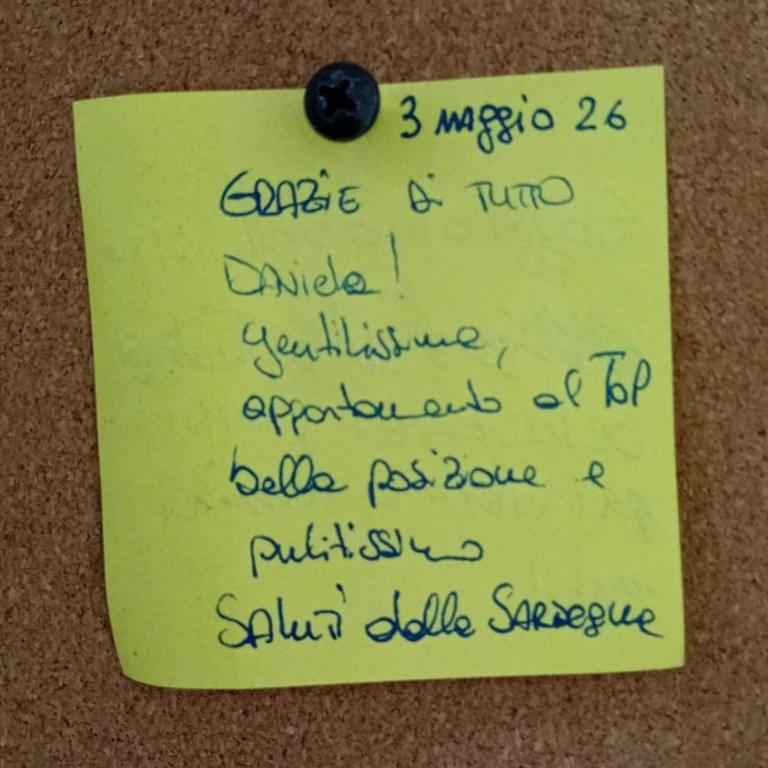 3 maggio 26
GRAZIE di TUTTO
DANiela!
gentilissima,
appartamento al TOP
bella posizione e
pulitissimo
SALUTi dalla SARDEGNA